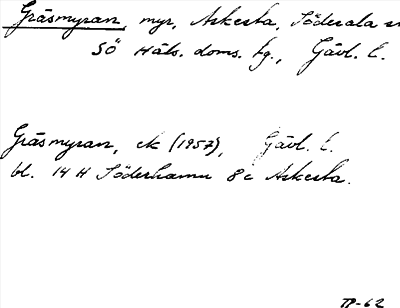 Gräsmyran, myr, Askesta, Söderala sn
SÖ Häls. doms. tg., Gävl. l.
Gräsmyran, ek (1957), Gävl. l.
bl. 14 H Söderhamn 8c Askesta.
-62